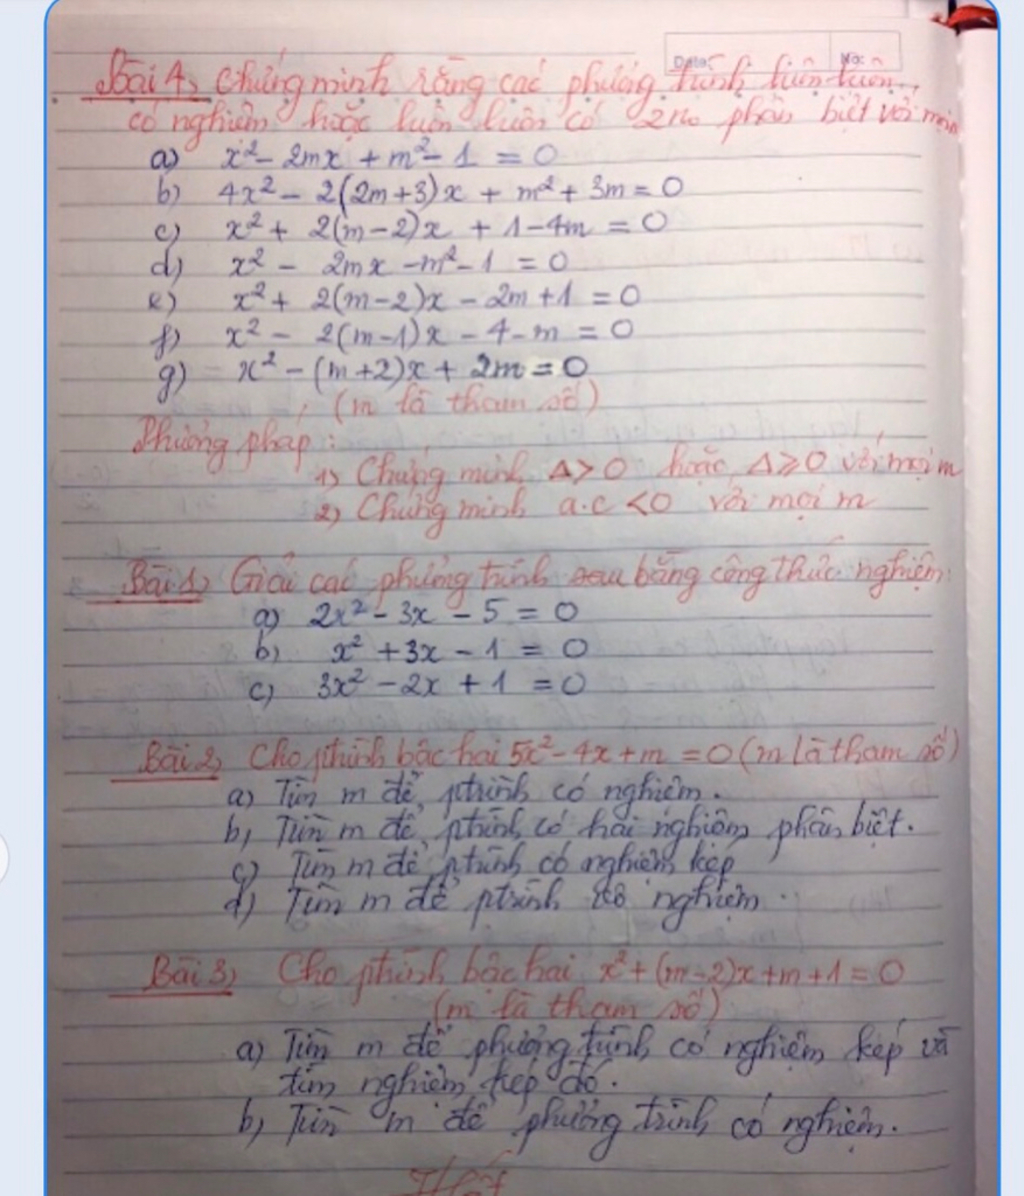 Date: No:
Bài 4, Chứng minh rằng các phương trình luôn luôn
có nghiệm hoặc luôn luôn có 2 no phân biệt với mọi m
a) x² - 2mx + m² - 1 = 0
b) 4x² - 2(2m+3)x + m² + 3m = 0
c) x² + 2(m-2)x + 1-4m = 0
d) x² - 2mx - m² - 1 = 0
e) x² + 2(m-2)x - 2m + 1 = 0
f) x² - 2(m-1)x - 4 - m = 0
g) x² - (m+2)x + 2m = 0
(m là tham số)
Phương pháp:
1) Chứng minh Δ > 0 hoặc Δ ⩾ 0 với mọi m
2) Chứng minh a.c < 0 với mọi m
Bài 1, Giải các phương trình sau bằng công thức nghiệm:
a) 2x² - 3x - 5 = 0
b) x² + 3x - 1 = 0
c) 3x² - 2x + 1 = 0
Bài 2, Cho ptrình bậc hai 5x² - 4x + m = 0 (m là tham số)
a) Tìm m để ptrình có nghiệm.
b, Tìm m để ptrình có hai nghiệm phân biệt.
c) Tìm m để ptrình có nghiệm kép
d) Tìm m để ptrình vô nghiệm.
Bài 3, Cho ptrình bậc hai x² + (m-2)x + m + 1 = 0
(m là tham số)
a) Tìm m để phương trình có nghiệm kép và
tìm nghiệm kép đó.
b, Tìm m để phương trình có nghiệm.
Hết